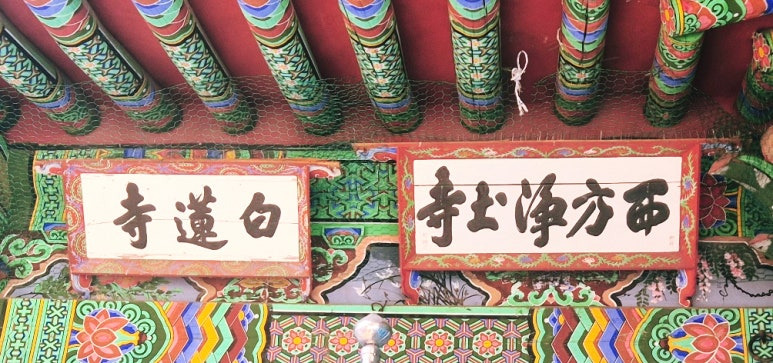 西方淨土寺
白蓮寺